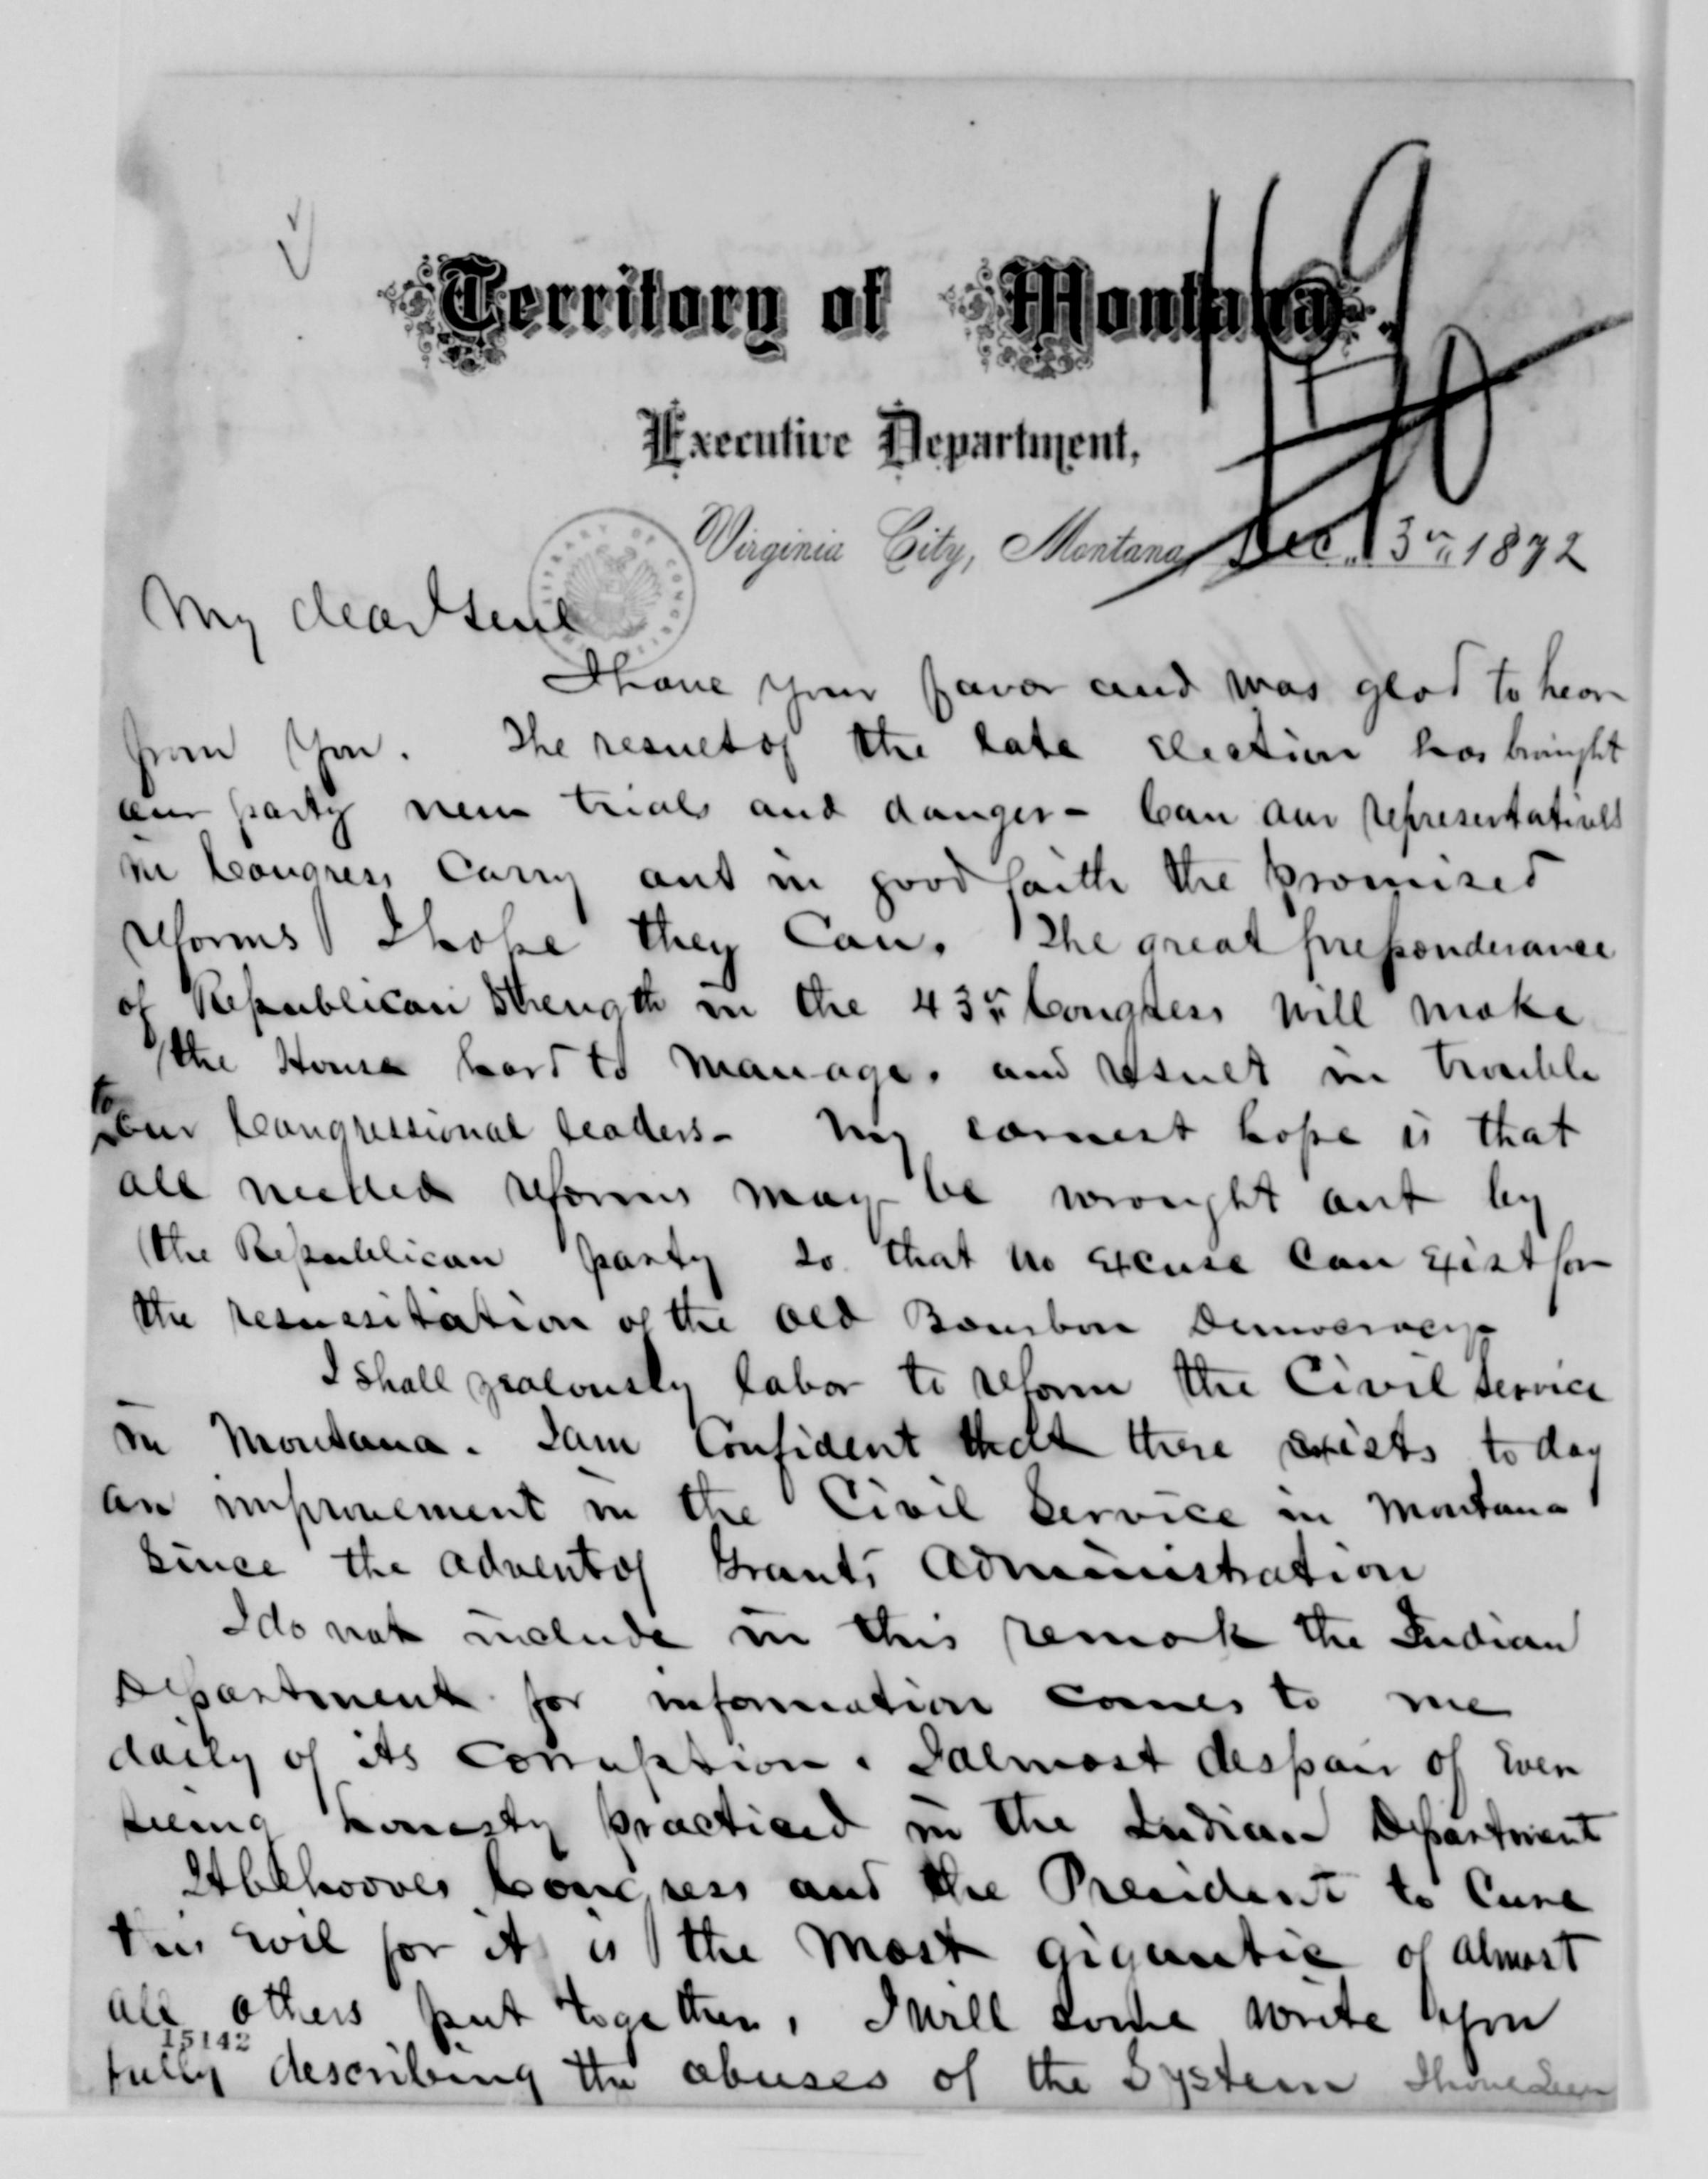 169
Territory of Montana.
Executive Department,
Virginia City, Montana, Dec. 3rd 1872
My dear Genl
I have your favor and was glad to hear
from you. The result of the late election has brought
our party new trials and danger - Can our representatives
in Congress carry out in good faith the promised
reforms I hope they can. The great preponderance
of Republican strength in the 43rd Congress will make
the House hard to manage. and result in trouble
to our Congressional leaders - My earnest hope is that
all needed reforms may be wrought out by
the Republican party so that no excuse can exist for
the resussitation of the old Bourbon Democracy -
I shall zealously labor to reform the Civil Service
in Montana. I am confident that there exists to day
an improvement in the Civil Service in Montana
since the advent of Grants Administration
I do not include in this remark the Indian
Department for information comes to me
daily of its corruption. I almost despair of ever
seeing honesty practiced in the Indian Department
It behooves Congress and the President to cure
this evil for it is the most gigantic of almost
all others put together, I will some write you
15142
fully describing the abuses of the System I have seen